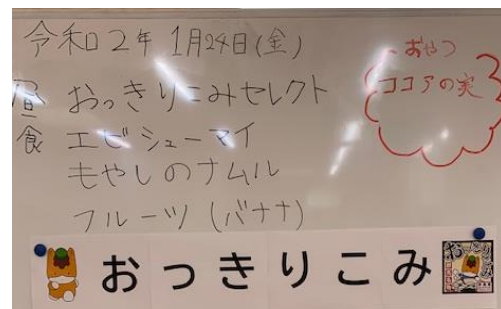 令和2年 1月24日(金)
昼食
おっきりこみセレクト
エビシューマイ
もやしのナムル
フルーツ (バナナ)
おやつ
ココアの実
おっきりこみ
おっきりこみ